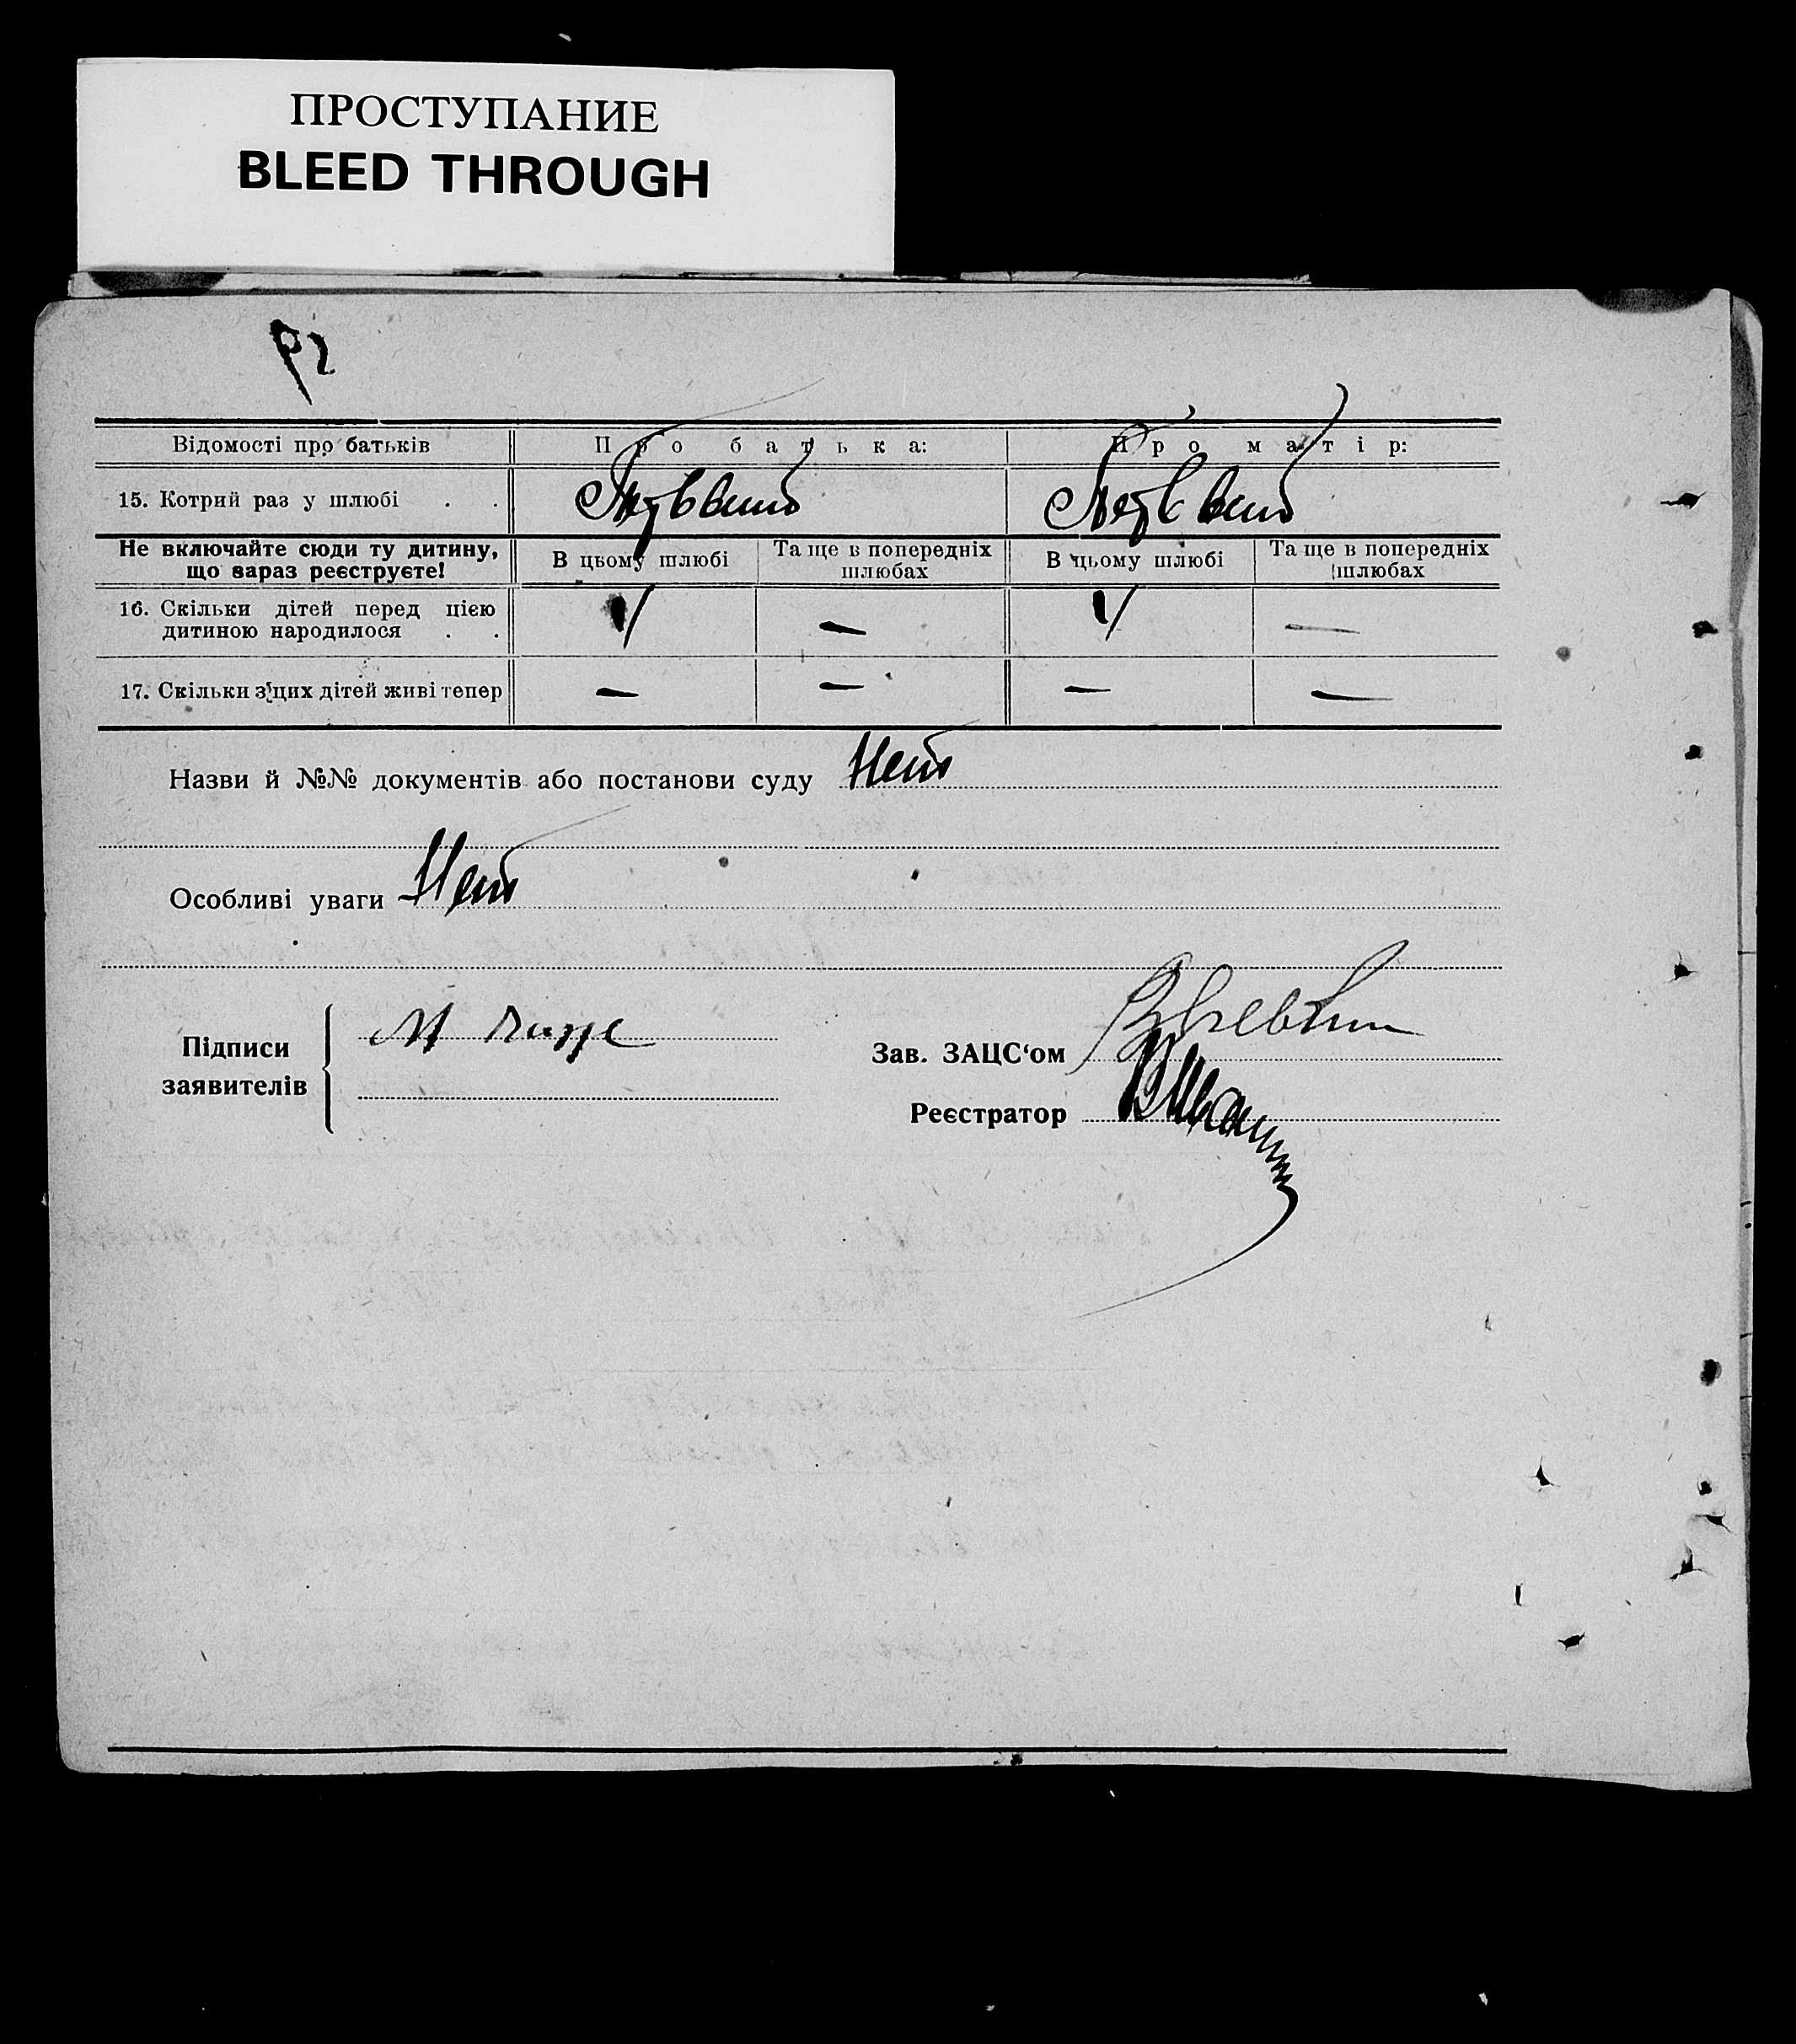 ПРОСТУПАНИЕ
BLEED THROUGH
Відомості про батьків
Про батька:
Про матір:
15. Котрий раз у шлюбі . .
Не включайте сюди ту дитину, що зараз реєструєте!
В цьому шлюбі
Та ще в попередніх шлюбах
В цьому шлюбі
Та ще в попередніх шлюбах
16. Скільки дітей перед цією
дитиною народилося . .
— —
17. Скільки з цих дітей живі тепер — — — —
Назви й №№ документів або постанови суду Нет
Особливі уваги Нет
Підписи
заявителів
Зав. ЗАЦС‘ом
Реєстратор